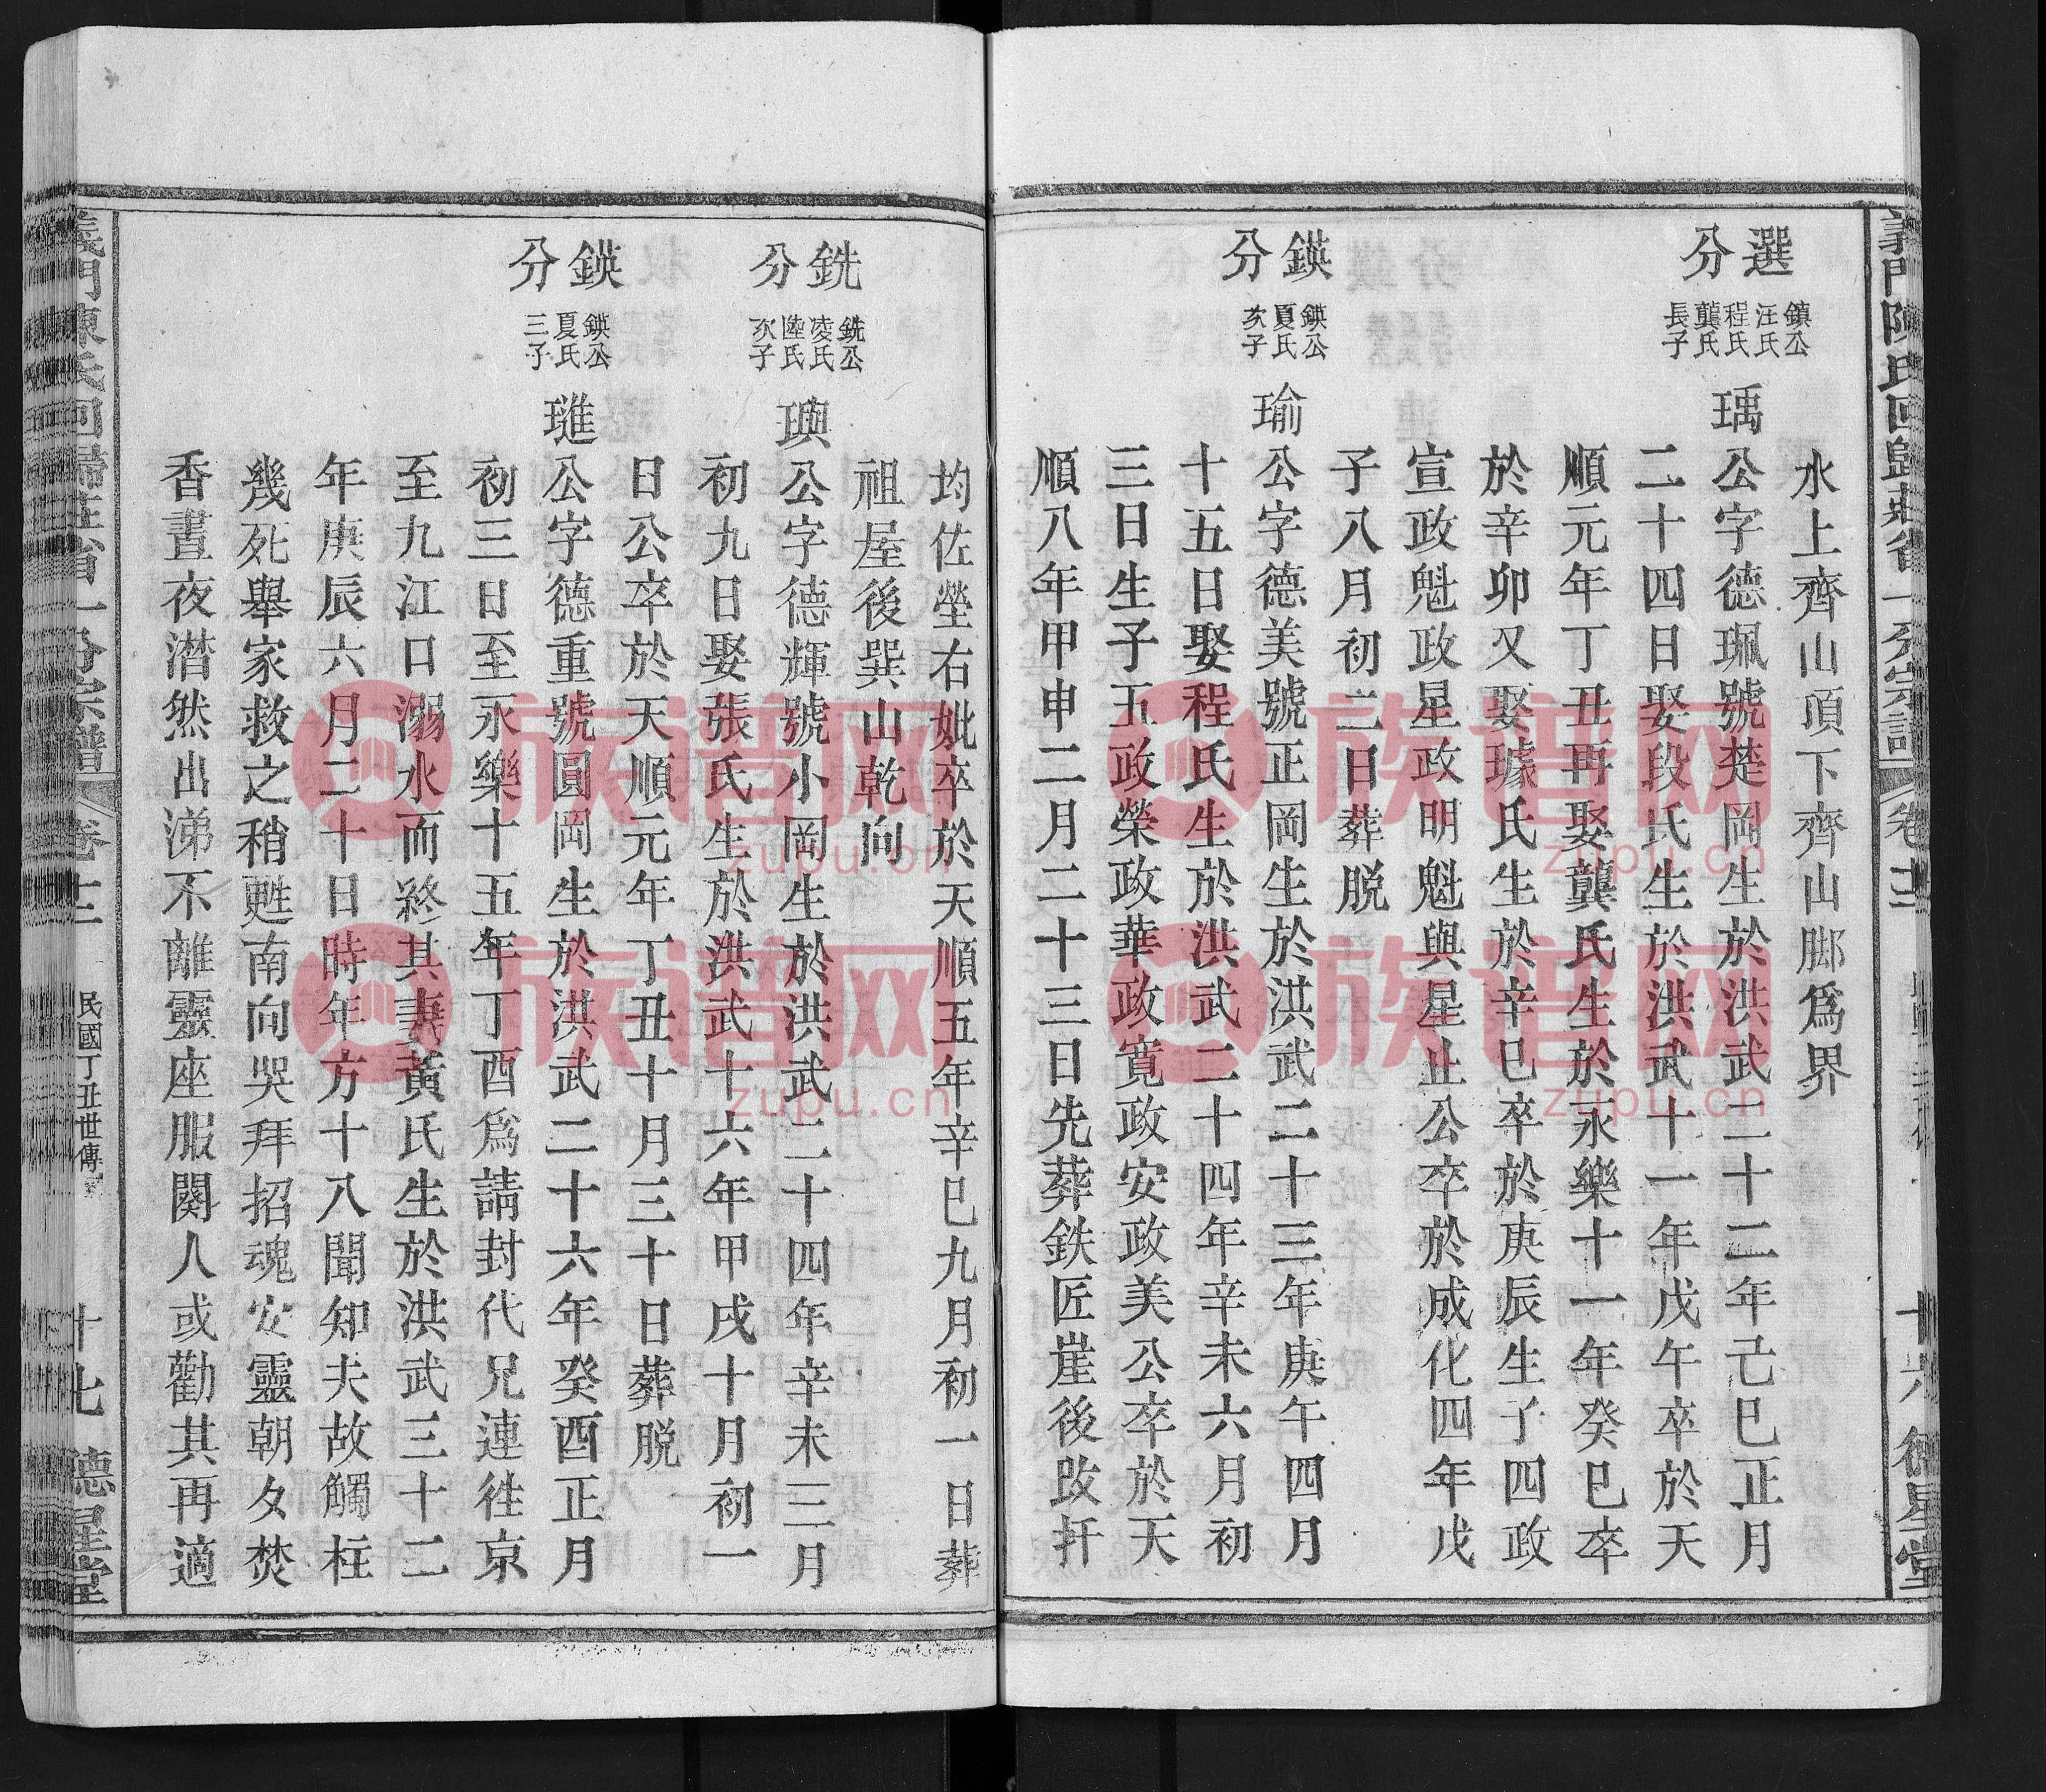 義門陳氏回歸莊省一分宗譜 卷十三 十六 德星堂
水上齊山頂下齊山脚爲界
選分 鎮公汪氏程氏龔氏長子
瑀公字德珮號楚岡生於洪武二十二年己巳正月
二十四日娶段氏生於洪武十一年戊午卒於天
順元年丁丑再娶龔氏生於永樂十一年癸巳卒
於辛卯又娶璩氏生於辛巳卒於庚辰生子四政
宣政魁政星政明魁與星止公卒於成化四年戊
子八月初二日葬脱
鍈分 鍈公夏氏次子
瑜公字德美號正岡生於洪武二十三年庚午四月
十五日娶程氏生於洪武二十四年辛未六月初
三日生子五政榮政華政寬政安政美公卒於天
順八年甲申二月二十三日先葬鉄匠崖後改扦
均佐塋右妣卒於天順五年辛巳九月初一日葬
祖屋後巽山乾向
銑分 銑公凌氏陸氏次子
璵公字德輝號小岡生於洪武二十四年辛未三月
初九日娶張氏生於洪武十六年甲戌十月初一
日公卒於天順元年丁丑十月三十日葬脱
鍈分 鍈公夏氏三子
璡公字德重號圓岡生於洪武二十六年癸酉正月
初三日至永樂十五年丁酉爲請封代兄連徃京
至九江口溺水而終其妻黃氏生於洪武三十二
年庚辰六月二十日時年方十八聞知夫故觸柱
幾死舉家救之稍甦南向哭拜招魂安靈朝夕焚
香晝夜潸然出涕不離靈座服闋人或勸其再適
義門陳氏回歸莊省一分宗譜 卷十三 民國丁丑世傳 十七 德星堂
族谱网
zupu.cn
族谱网
zupu.cn
族谱网
zupu.cn
族谱网
zupu.cn